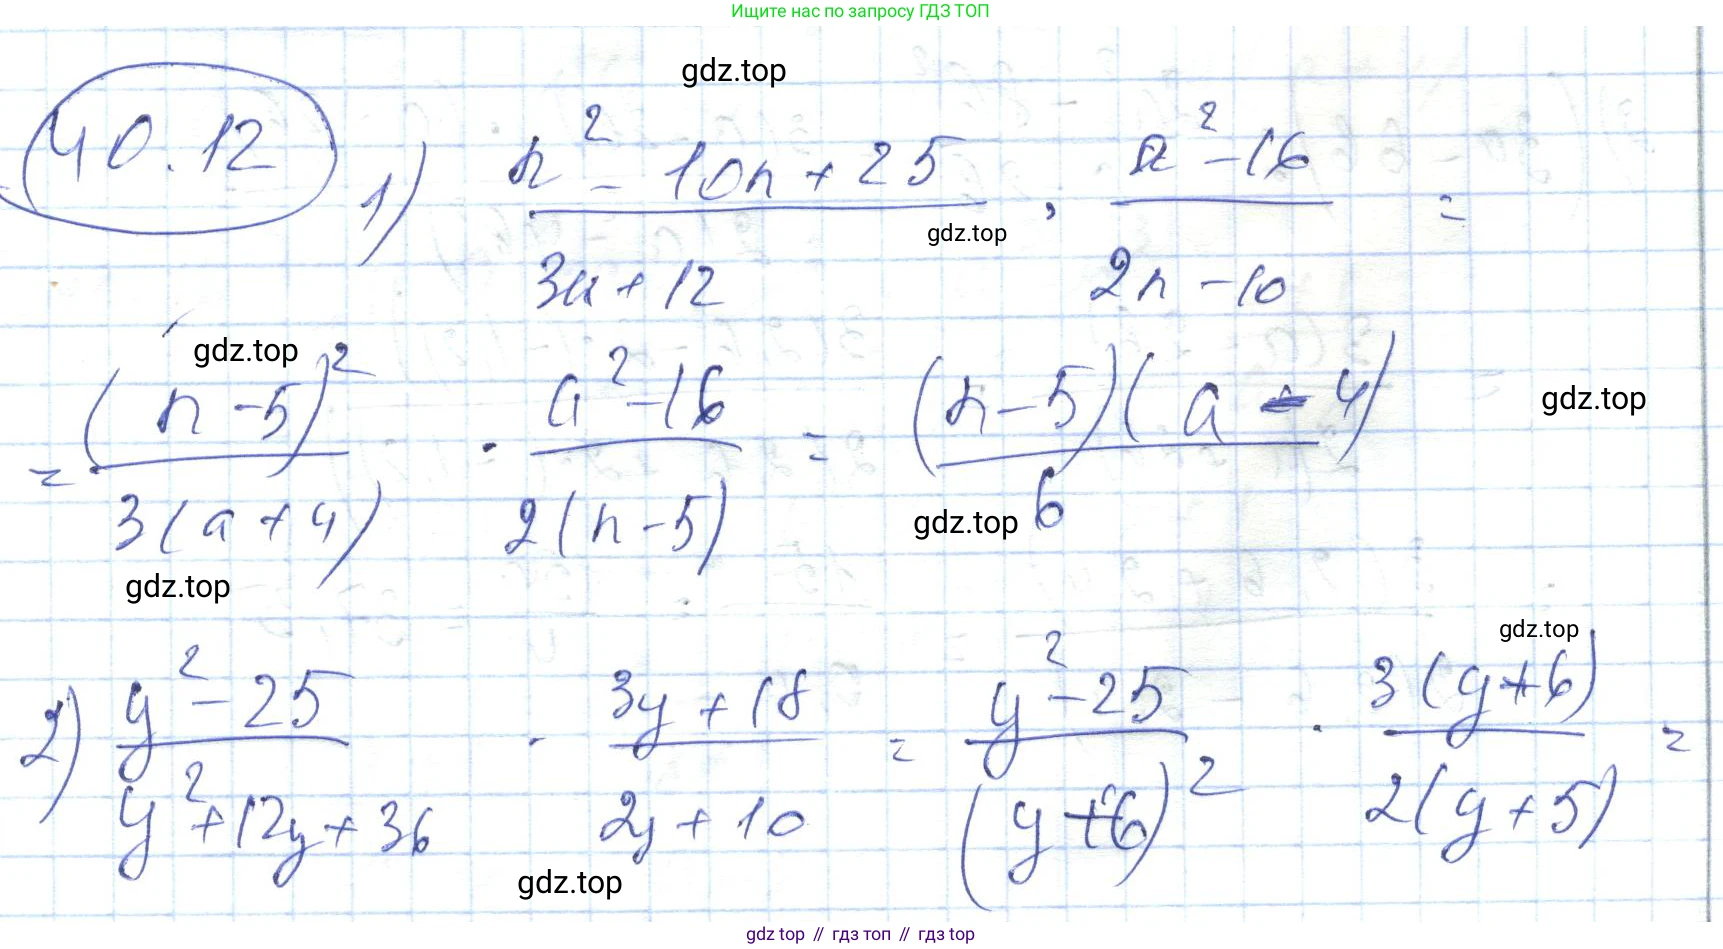 Ищите нас по запросу ГДЗ ТОП
gdz.top
40.12
1) (n² - 10n + 25)/(3a + 12) · (a² - 16)/(2n - 10) =
gdz.top
gdz.top
= (n - 5)²/(3(a + 4)) · (a² - 16)/(2(n - 5)) = ((n - 5)(a - 4))/6
gdz.top
gdz.top
gdz.top
gdz.top
2) (y² - 25)/(y² + 12y + 36) · (3y + 18)/(2y + 10) = (y² - 25)/(y + 6)² · (3(y + 6))/(2(y + 5)) =
gdz.top
gdz top // гдз топ // гдз top